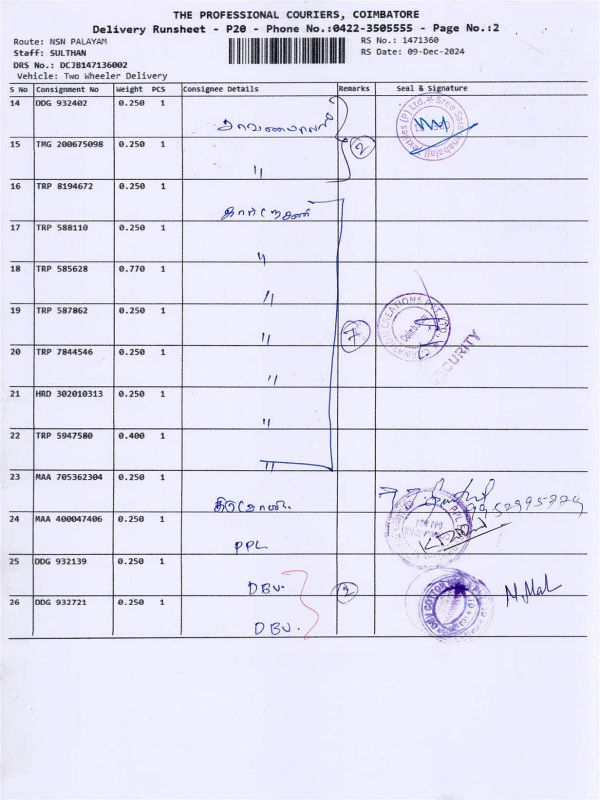 THE PROFESSIONAL COURIERS, COIMBATORE
Delivery Runsheet - P20 - Phone No.:0422-3505555 - Page No.:2
Route: NSN PALAYAM
Staff: SULTHAN
DRS No.: DCJB147136002
Vehicle: Two Wheeler Delivery
RS No.: 1471360
RS Date: 09-Dec-2024
S No Consignment No Weight PCS Consignee Details Remarks Seal & Signature
14 DDG 932402 0.250 1
15 TMG 200675098 0.250 1 "
2
16 TRP 8194672 0.250 1
17 TRP 588110 0.250 1 "
18 TRP 585628 0.770 1 "
19 TRP 587862 0.250 1 "
7
20 TRP 7844546 0.250 1 "
SECURITY
21 HRD 302010313 0.250 1 "
22 TRP 5947580 0.400 1 "
23 MAA 705362304 0.250 1
24 MAA 400047406 0.250 1 PPL
25 DDG 932139 0.250 1 DBV.
2
26 DDG 932721 0.250 1 DBV.